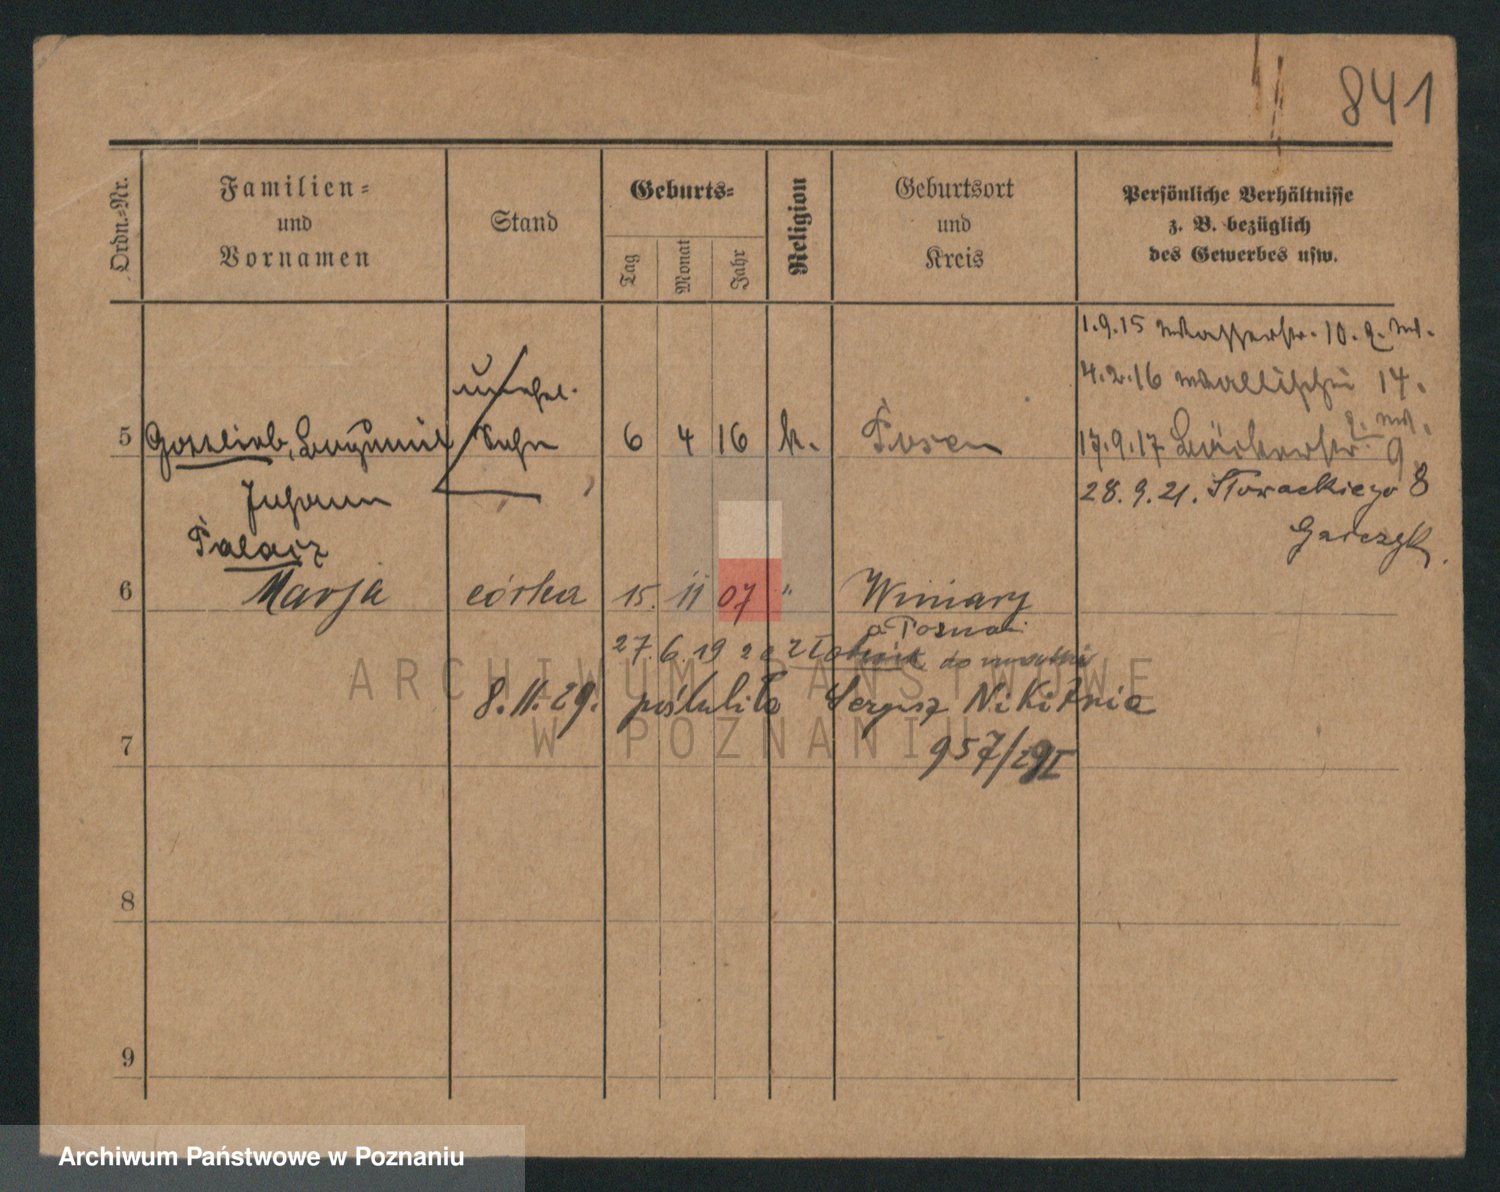 841
Ordn.-Nr.
Familien-
und
Vornamen
Stand
Geburts-
Tag
Monat
Jahr
Religion
Geburtsort
und
Kreis
Persönliche Verhältnisse
z. B. bezüglich
des Gewerbes usw.
1.9.15 Wasserstr. 10.
4.2.16 Wallischei 14.
unehel.
5 Gottlieb, Bogumil Sohn 6 4 16 k. Posen 17.9.17 Bäckerstr. 9
28.9.21. Słowackiego 8
Johann
Garczyk.
Palacz
6 Marja córka 15. 11 07 " Winiary
27 6 19 20 do matki
8. 11. 29. poślubiła Sergjusz Nikitnia
7 957/29I
8
9
ARCHIWUM PAŃSTWOWE
W POZNANIU
Archiwum Państwowe w Poznaniu